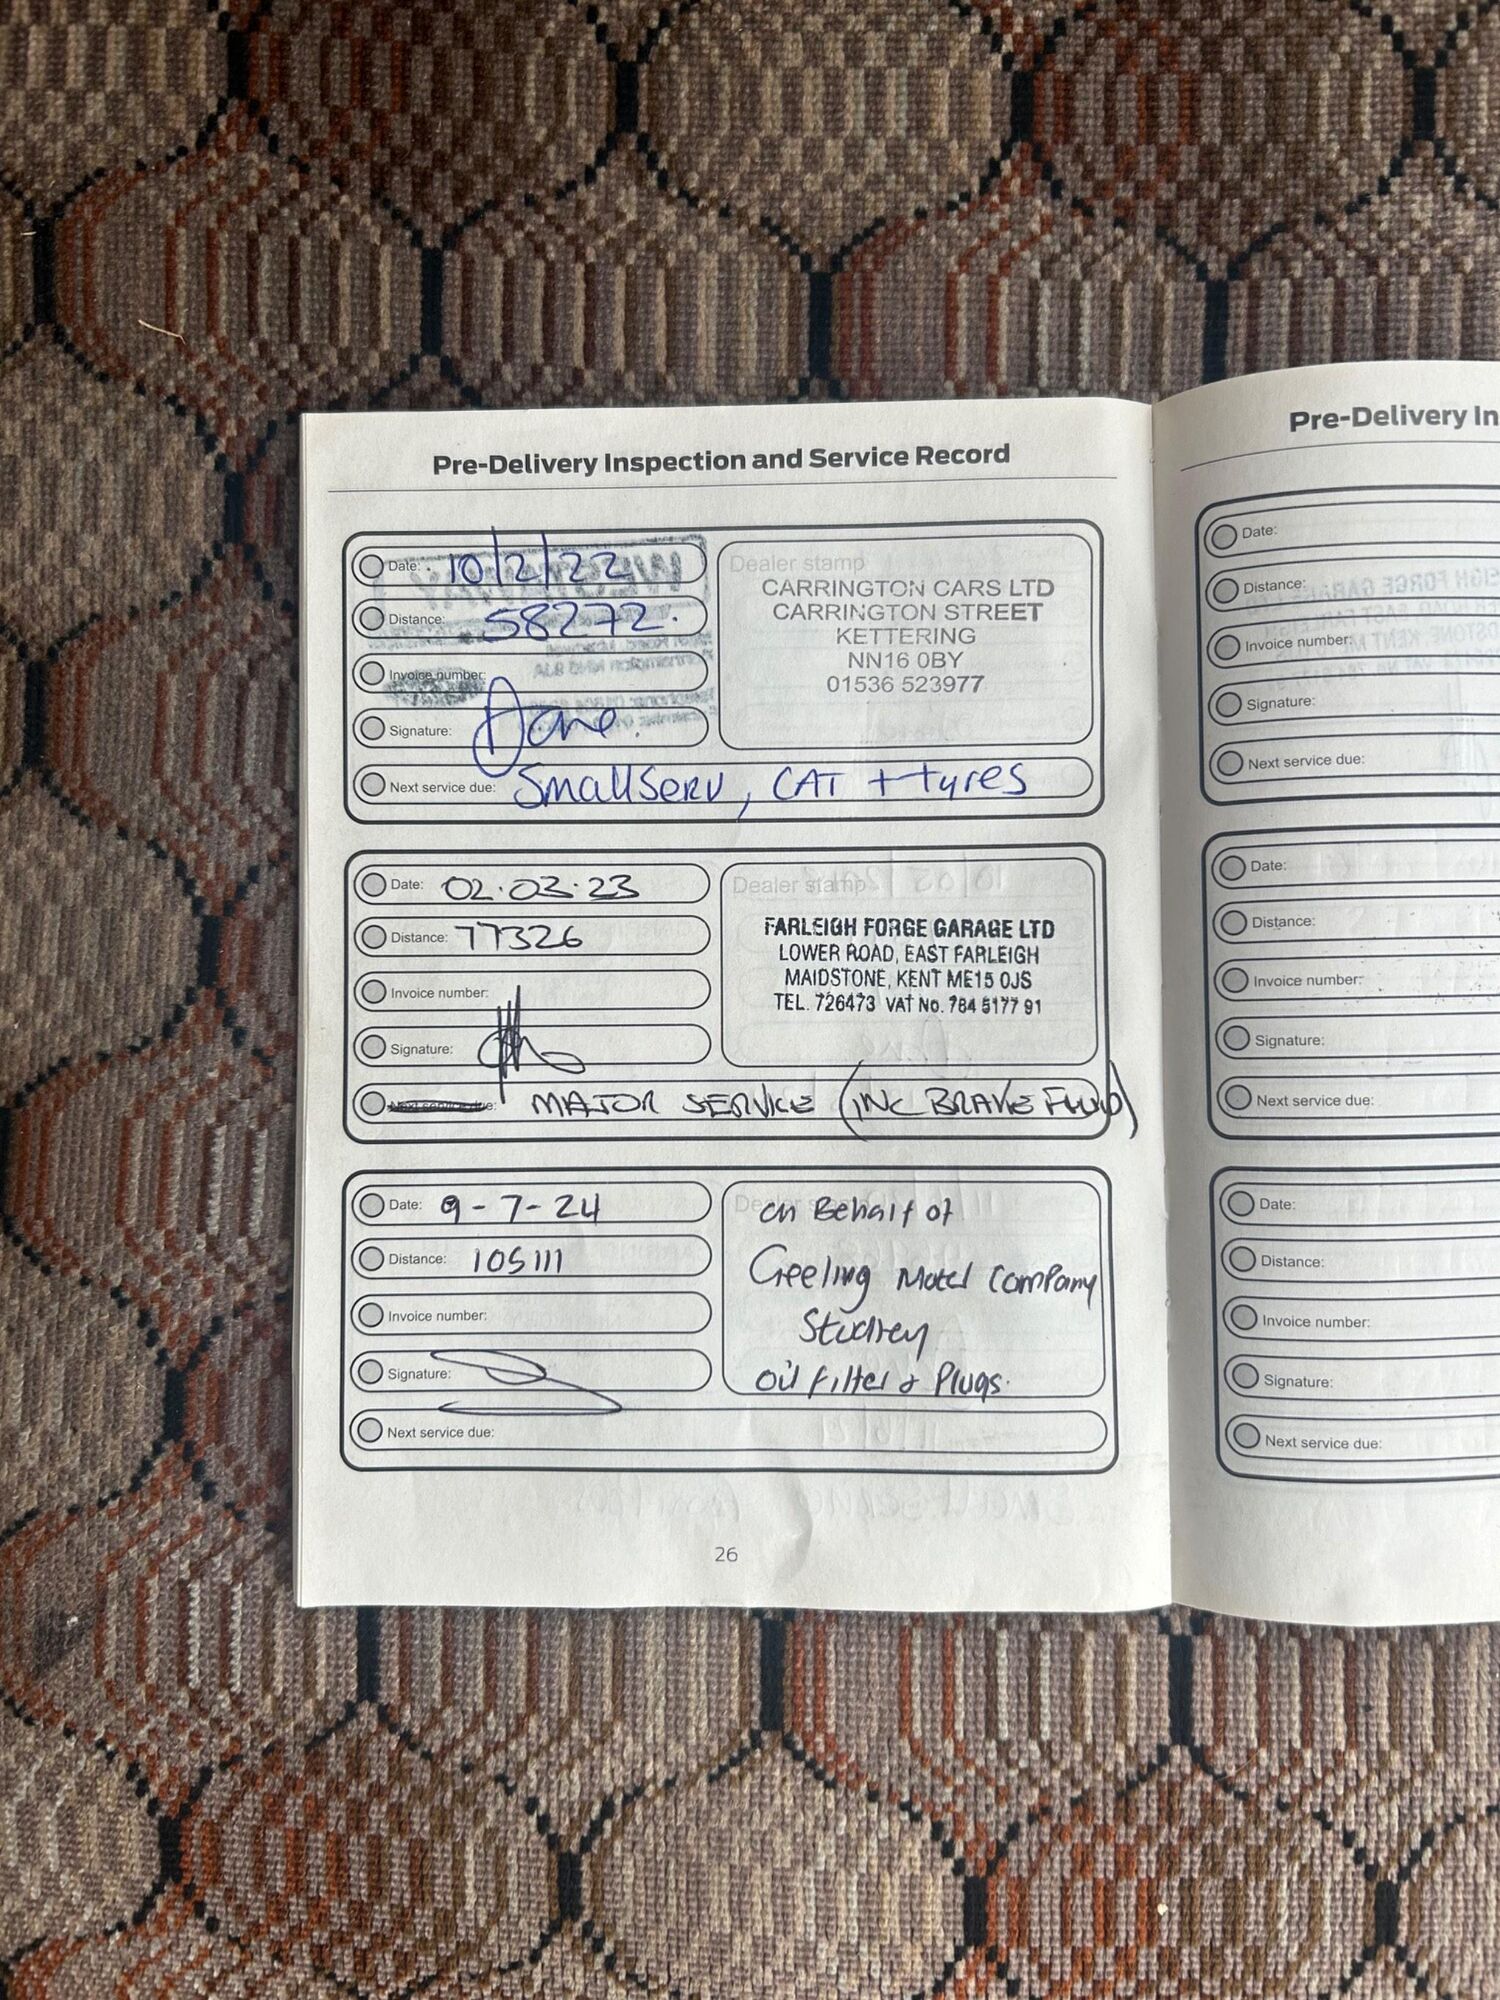 Pre-Delivery Inspection and Service Record
Date: 10/2/22
Distance: 58272.
Invoice number:
Signature:
Next service due: Small Serv, CAT + tyres
Dealer stamp
CARRINGTON CARS LTD
CARRINGTON STREET
KETTERING
NN16 0BY
01536 523977
Date: 02.03.23
Distance: 77326
Invoice number:
Signature:
Next service due: MAJOR SERVICE (INC BRAKE FLUID)
Dealer stamp
FARLEIGH FORGE GARAGE LTD
LOWER ROAD, EAST FARLEIGH
MAIDSTONE, KENT ME15 0JS
TEL. 726473 VAT No. 784 5177 91
Date: 9-7-24
Distance: 105111
Invoice number:
Signature:
Next service due:
Dealer stamp
on Behalf of
Motor Company
oil filter & Plugs.
26
Pre-Delivery In
Date:
Distance:
Invoice number:
Signature:
Next service due:
Date:
Distance:
Invoice number:
Signature:
Next service due:
Date:
Distance:
Invoice number:
Signature:
Next service due: